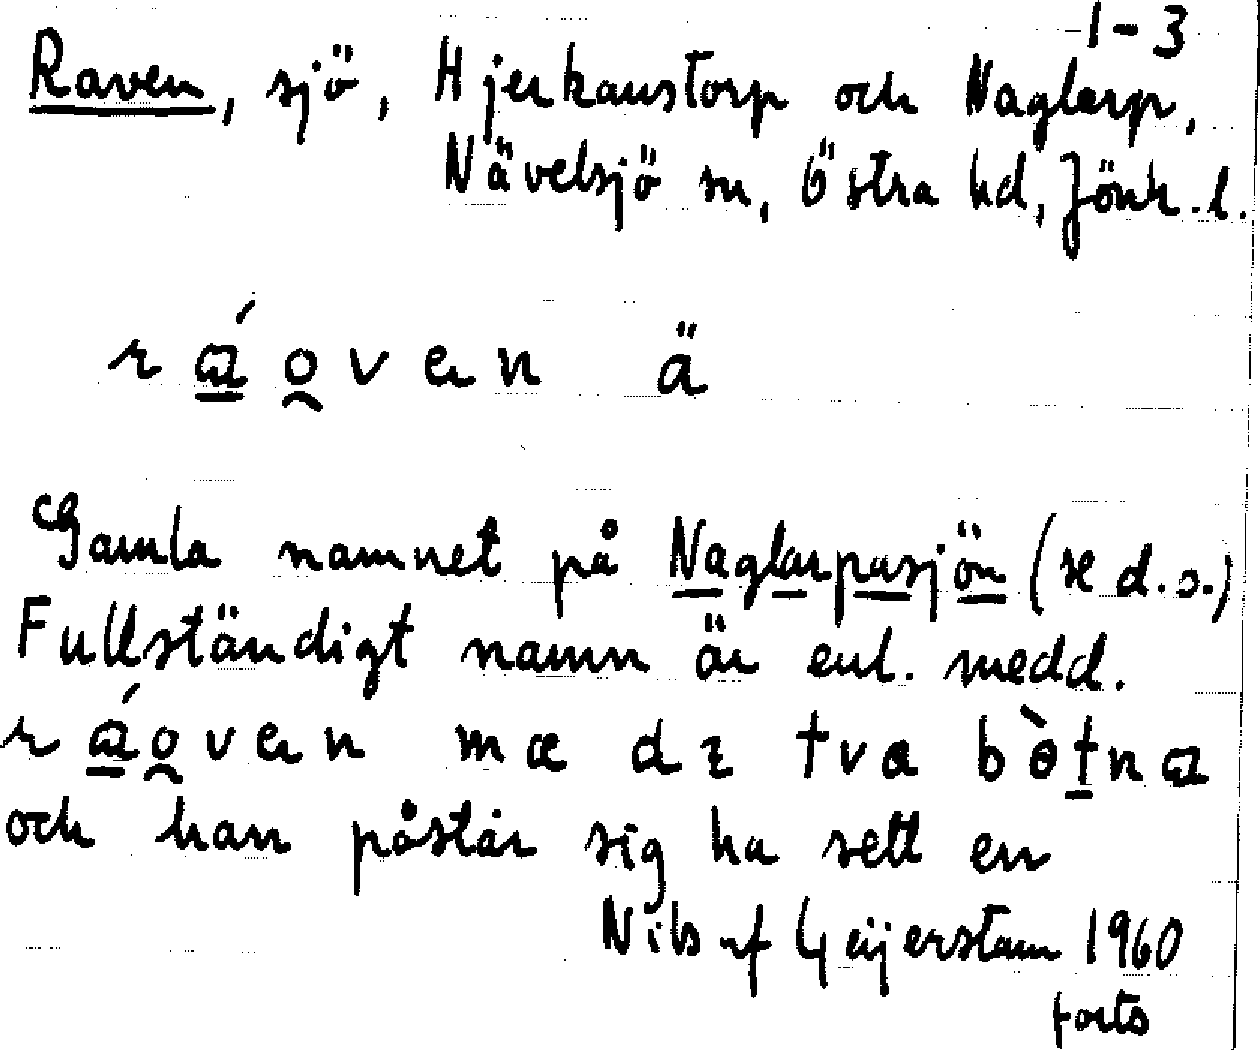 1-3
Raven, sjö, Hjerkanstorp och Naglarp,
Nävelsjö sn, Östra hd, Jönk. l.
rɑ́o̯ven ä
Gamla namnet på Naglarpasjön (se d.o.)
Fullständigt namn är enl. medd.
rɑ́o̯ven mæ dɪ tva bòtnɑ
och han påstår sig ha sett en
Nils af Geijerstam 1960
forts